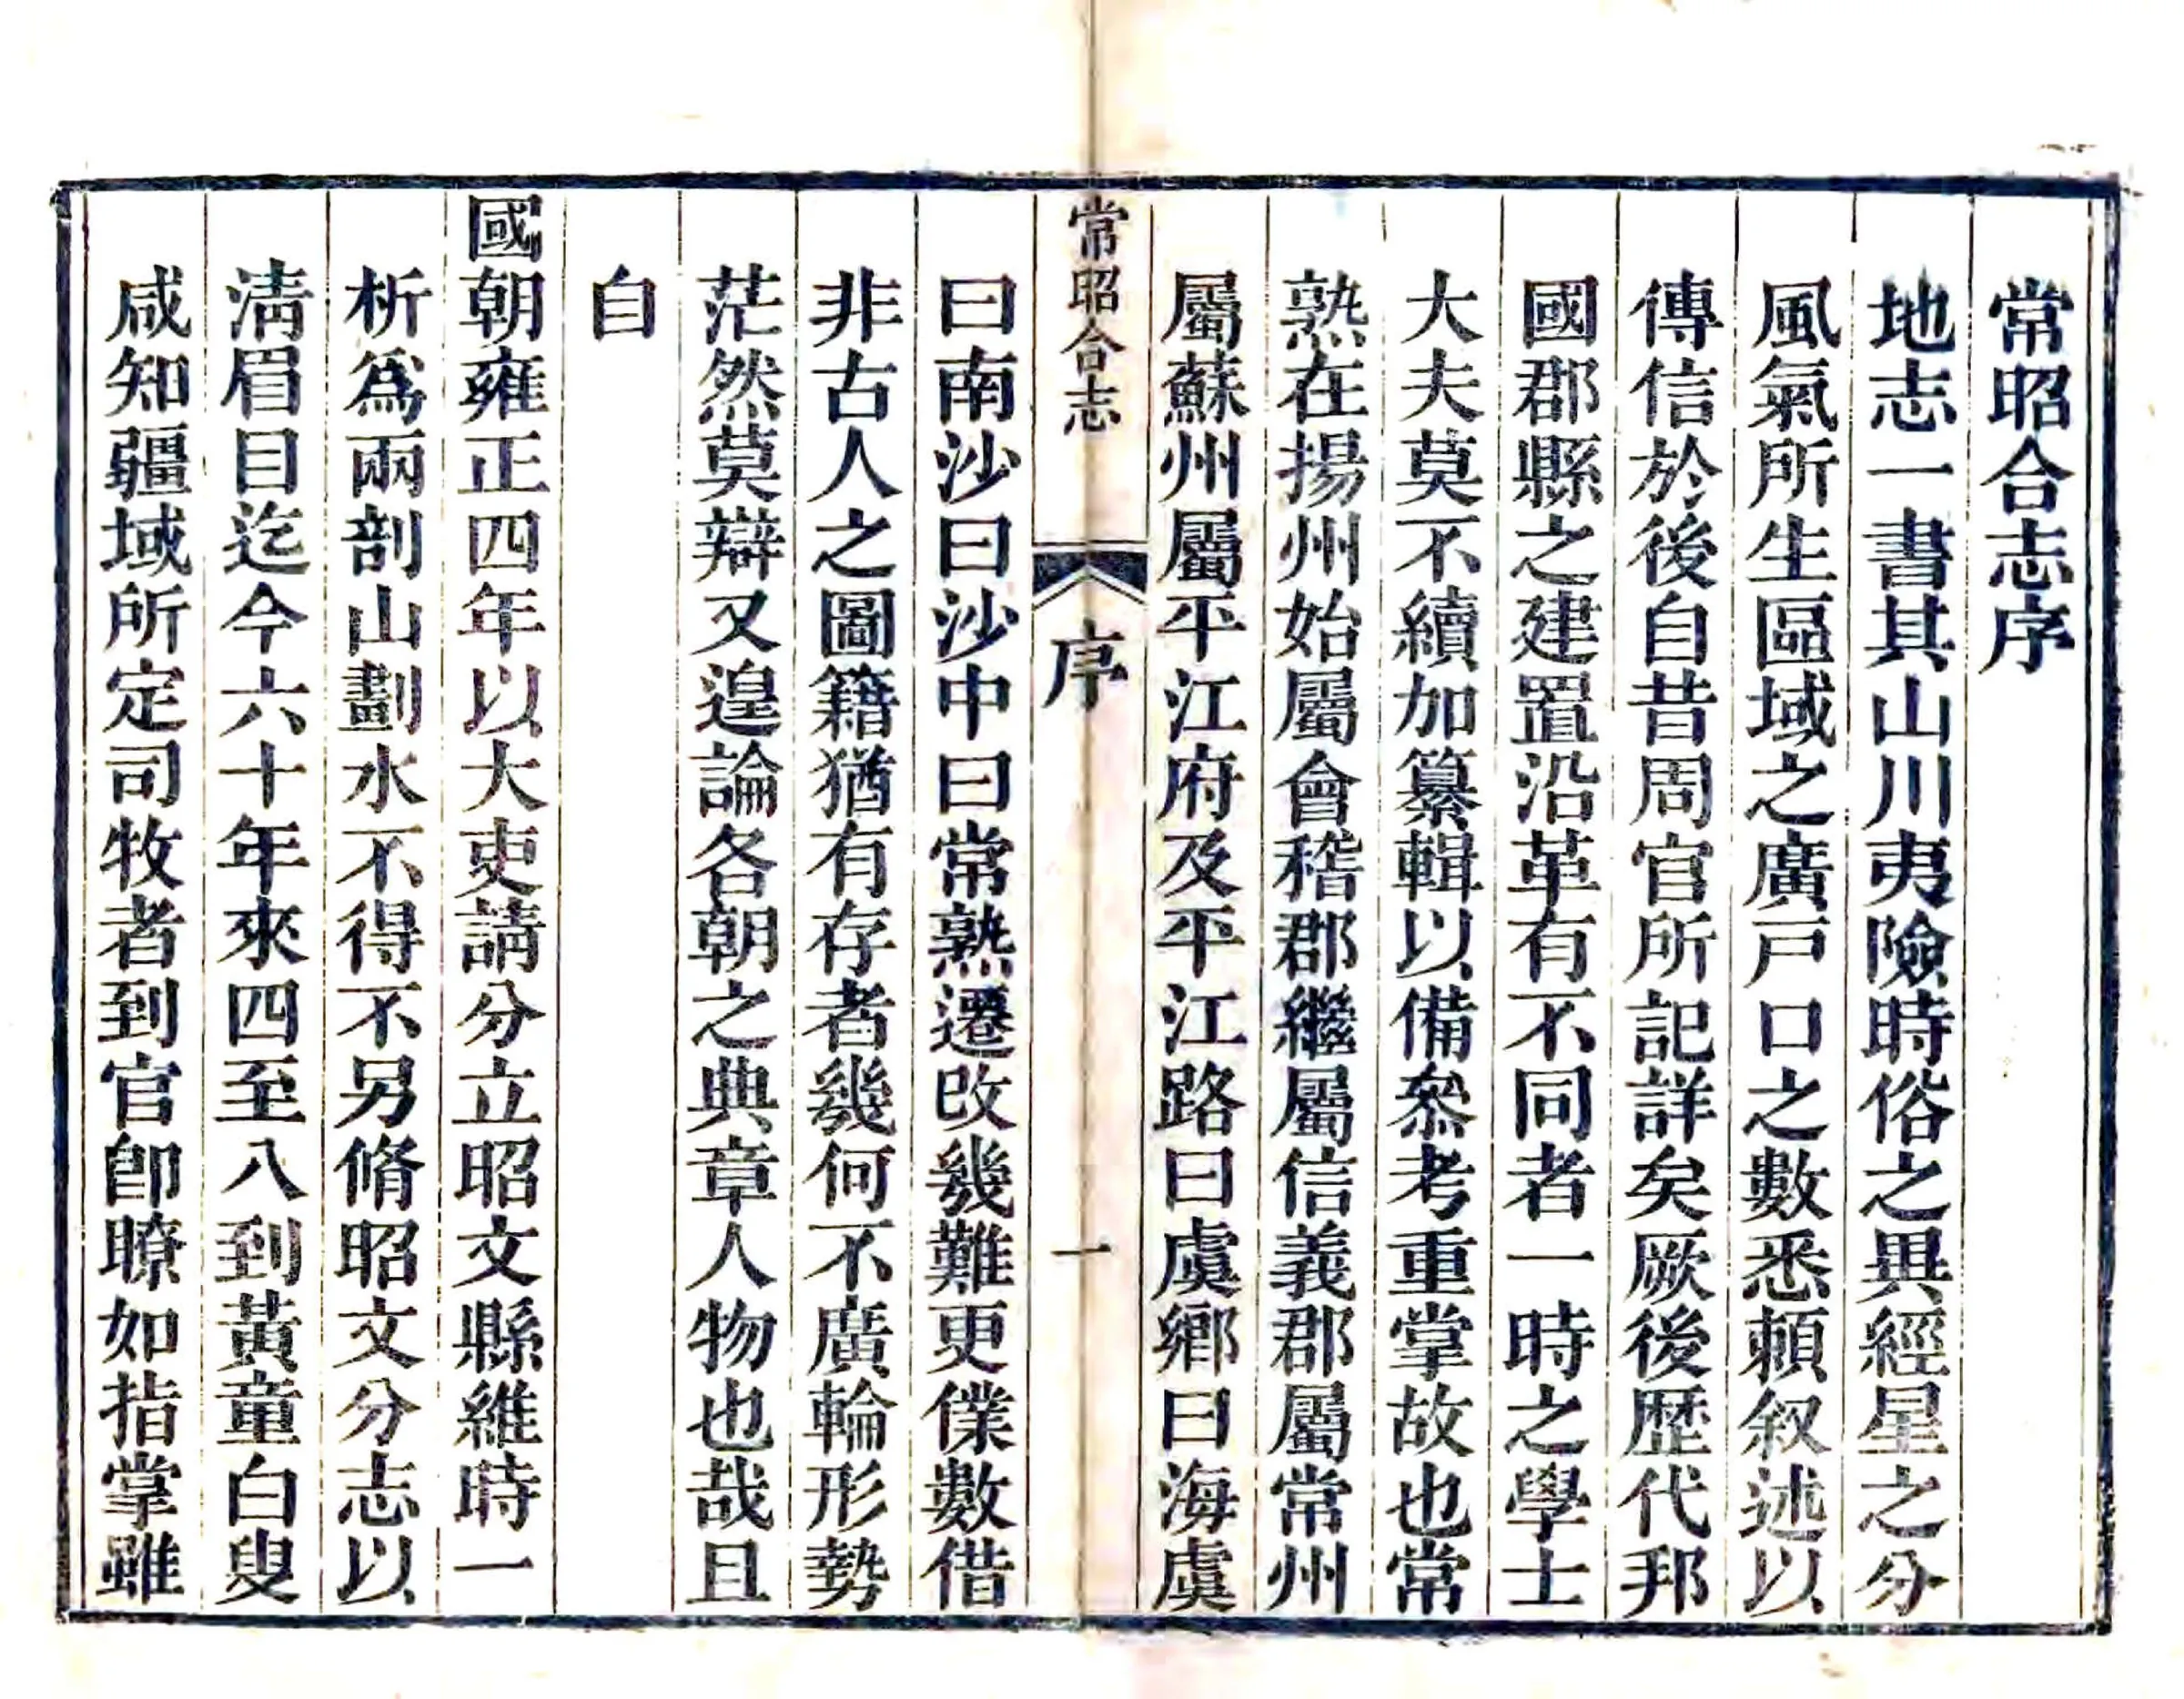 常昭合志序
地志一書其山川夷險時俗之異經星之分
風氣所生區域之廣戸口之數悉賴叙述以
傳信於後自昔周官所記詳矣厥後歴代邦
國郡縣之建置沿革有不同者一時之學士
大夫莫不續加纂輯以備叅考重掌故也常
熟在揚州始屬會稽郡繼屬信義郡屬常州
屬蘇州屬平江府及平江路曰虞鄉曰海虞
常昭合志
序
一
曰南沙曰沙中曰常熟遷改幾難更僕數借
非古人之圖籍猶有存者幾何不廣輪形勢
茫然莫辯又遑論各朝之典章人物也哉且
自
國朝雍正四年以大吏請分立昭文縣維時一
析爲兩剖山劃水不得不另脩昭文分志以
清眉目迄今六十年來四至八到黃童白叟
咸知疆域所定司牧者到官卽瞭如指掌雖